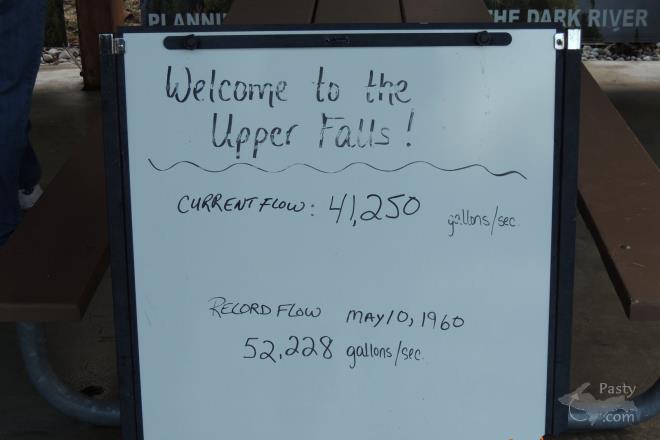 PLANNI
THE DARK RIVER
Welcome to the
Upper Falls!
CURRENT FLOW: 41,250 gallons/sec.
RECORD FLOW MAY 10, 1960
52,228 gallons/sec.
Pasty
.com